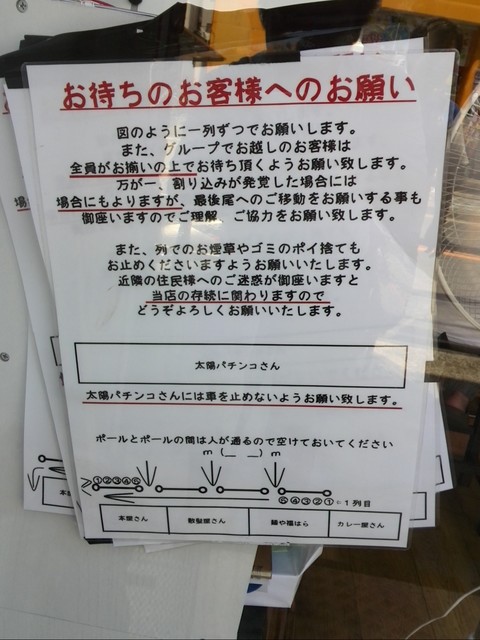 お待ちのお客様へのお願い
図のように一列ずつでお願いします。
また、グループでお越しのお客様は
全員がお揃いの上でお待ち頂くようお願い致します。
万が一、割り込みが発覚した場合には
場合にもよりますが、最後尾へのご移動をお願いする事も
御座いますのでご理解、ご協力をお願い致します。
また、列でのお煙草やゴミのポイ捨ても
お止めくださいますようお願いいたします。
近隣の住民様へのご迷惑が御座いますと
当店の存続に関わりますので
どうぞよろしくお願いいたします。
太陽パチンコさん
太陽パチンコさんには車を止めないようお願い致します。
ポールとポールの間は人が通るので空けておいてください
m(__ __)m
①②③④⑤
⑤④③②① 1列目
本屋さん 散髪屋さん 麺や福はら カレー屋さん